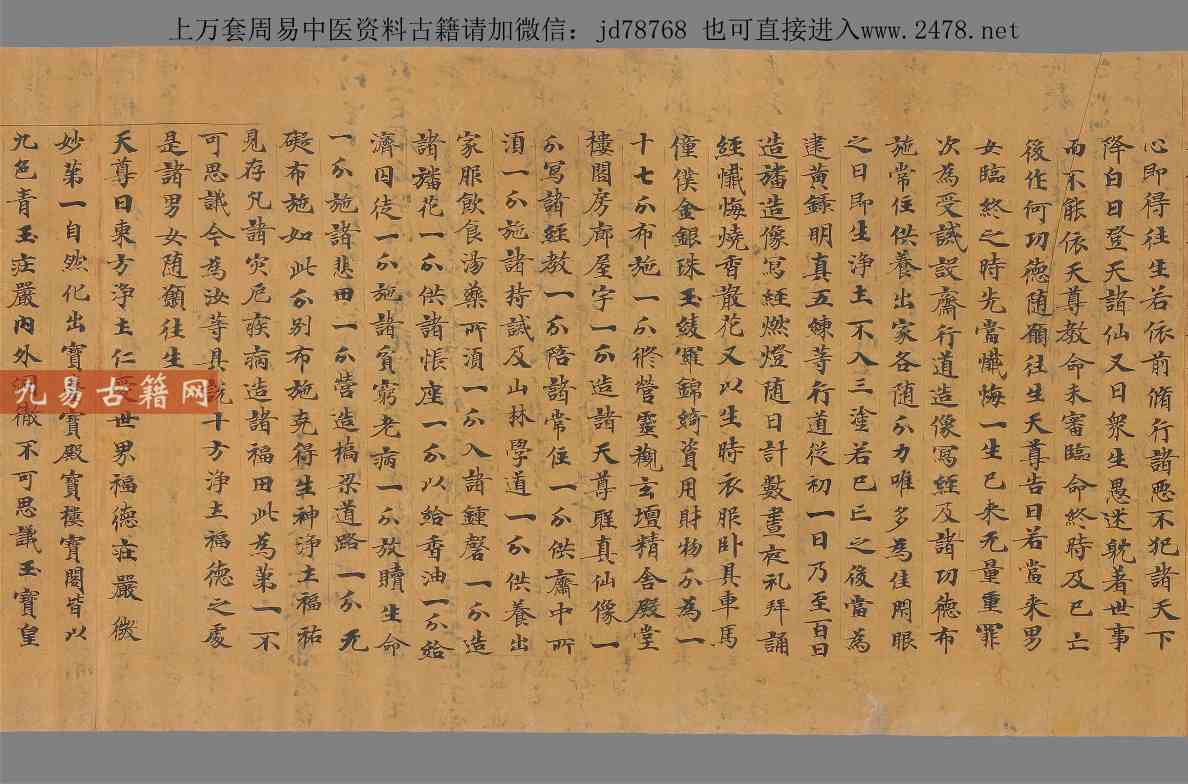 上万套周易中医资料古籍请加微信：jd78768 也可直接进入www.2478.net
心即得往生若依前脩行諸惡不犯諸天下
降白日登天諸仙又曰衆生愚迷躭著世事
而不能依天尊教命未審臨命終時及已亡
後作何功德随願往生天尊告曰若當来男
女臨終之時先當懺悔一生已来无量重罪
次為受誡設齋行道造像寫經及諸功德布
施常住供養出家各随分力唯多為佳閇眼
之日即生浄土不入三塗若已亡之後當為
建黄籙明真五練等行道従初一日乃至百日
造旛造像寫經燃燈随日計數晝夜礼拜誦
經懺悔燒香散花又以生時衣服卧具車馬
僮僕金銀珠玉綾羅錦綺資用財物分為一
十七分布施一分脩營靈觀玄壇精舎殿堂
樓閣房廊屋宇一分造諸天尊聖真仙像一
分寫諸經教一分陪諸常住一分供齋中所
湏一分施諸持誡及山林學道一分供養出
家服飲食湯藥所湏一分入諸鍾磬一分造
諸旛花一分供諸帳座一分以給香油一分給
濟囚徒一分施諸貧窮老病一分放贖生命
一分施諸悲田一分營造橋梁道路一分无
礙布施如此分别布施竟得生神浄土福祐
見存凡諸灾厄疾病造諸福田此為苐一不
可思議今為汝等具説十方浄土福德之處
是諸男女随願往生
天尊曰東方浄土仁 世界福德莊嚴微
妙苐一自然化出寶 寶殿寶樓寶閣皆以
九色青玉莊嚴内外 徹不可思議玉寶皇
九易古籍网